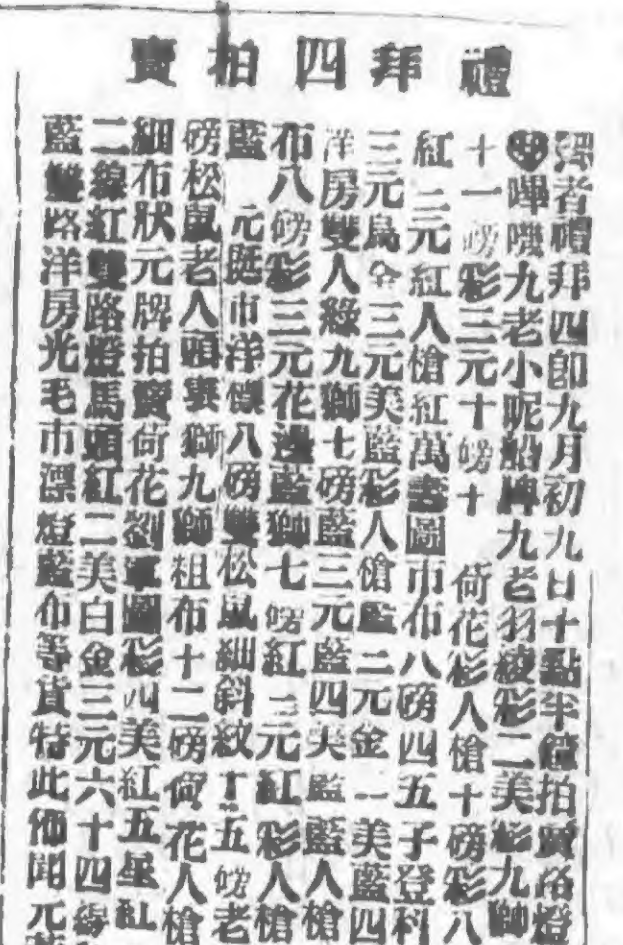 禮拜四拍賣
啟者禮拜四卽九月初九日十點半鐘拍賣洛燈
嗶嘰九老小呢船牌九老羽綾彩二美彩九獅
十一磅彩三元十磅十 荷花彩人槍十磅彩八
紅二元紅人槍紅萬壽圖市布八磅四五子登科
三元烏金三元美藍彩人槍藍二元金一美藍四
洋房雙人綠九獅七磅藍三元藍四美藍藍人槍
布八磅彩三元花邊藍獅七磅紅三元紅彩人槍
藍 元斑市洋標八磅雙松鼠細斜紋丁五磅老
磅松鼠老人頭雙獅九獅粗布十二磅荷花人槍
細布狀元牌拍賣荷花劉軍圖彩四美紅五星紅
二線紅雙路燈馬頭紅二美白金三元六十四
藍雙路洋房光毛市漂燈藍布等貨特此佈聞元